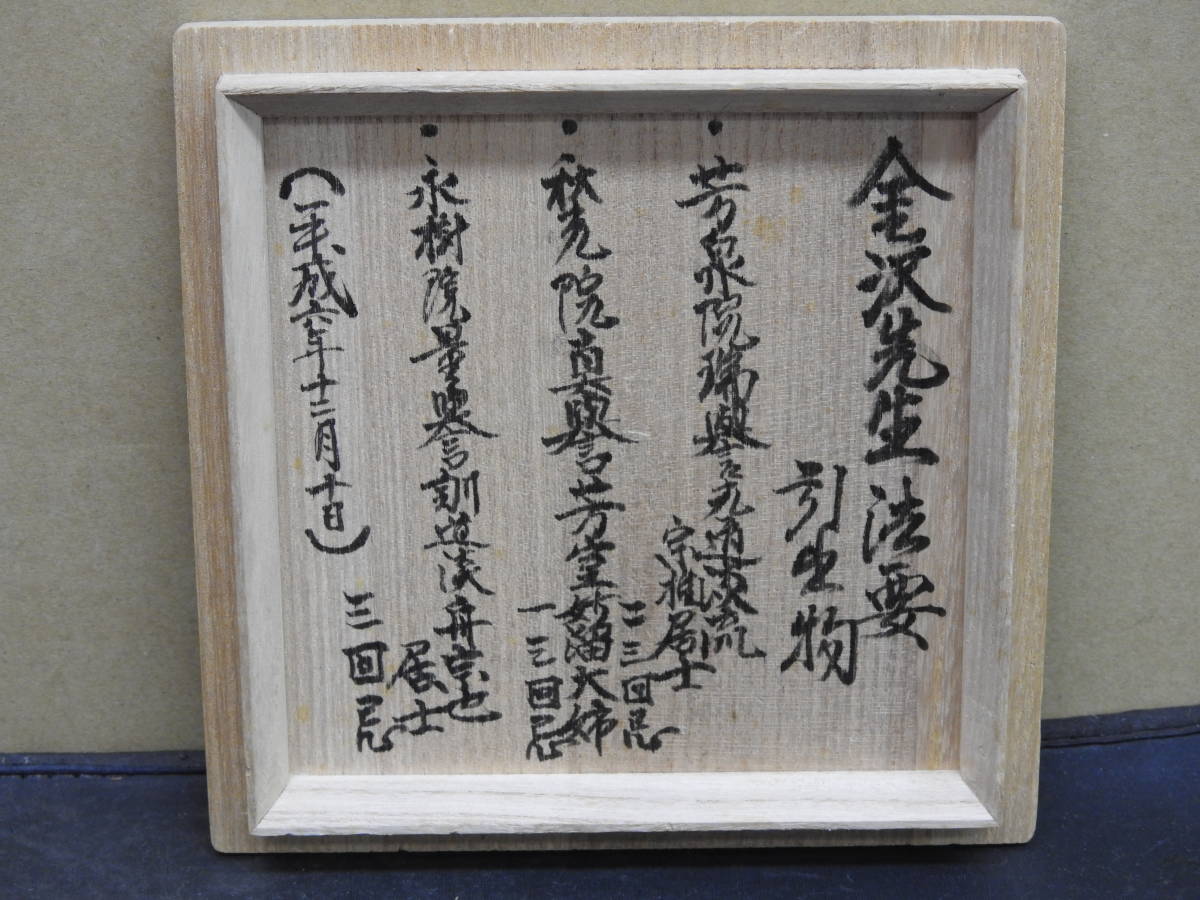 金沢先生 法要
引出物
・芳泉院瑞譽九通次流
宗柚居士
二三回忌
・秋光院真譽芳室妙大姉
一三回忌
・永樹院量譽訓道渓舟宗也
居士
三回忌
(平成六年十二月十日)